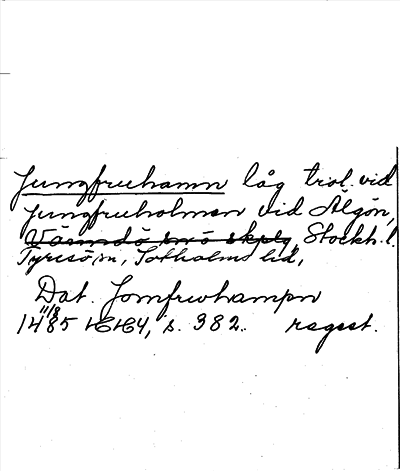 Jungfruhamn låg trol. vid
Jungfruholmen vid Älgön,
Värmdö srvö skplg, Stockh. l.
Tyresö sn, Sotholms hd,
Dat. Jomfrwhampn
11/8
1485 HSH 4, s. 382. regest.